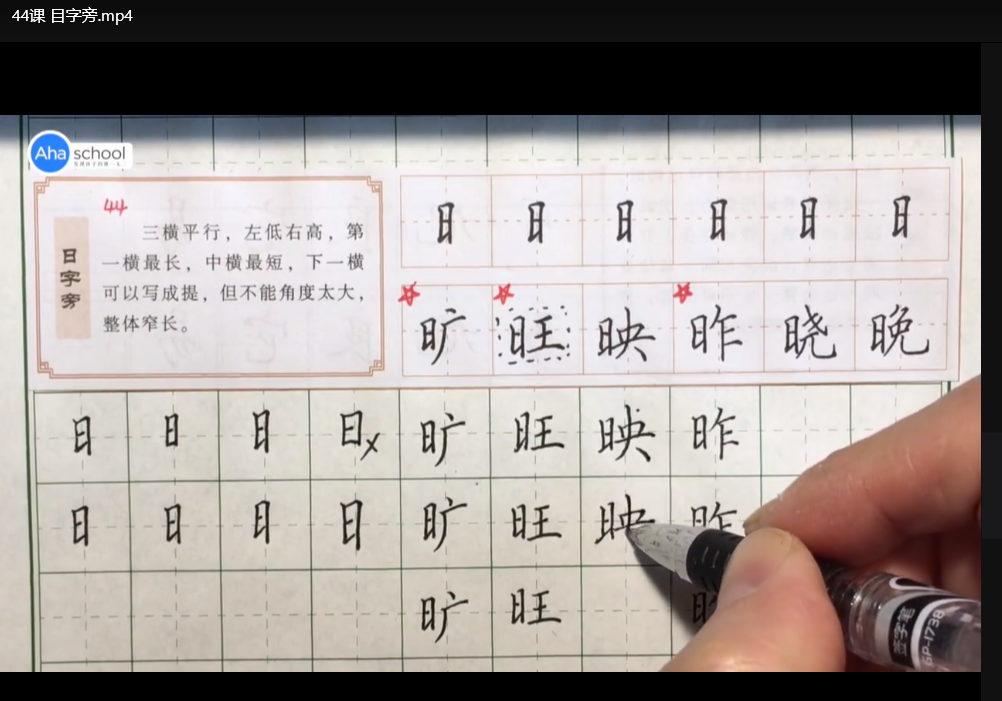 44课 目字旁.mp4
Aha school
44
日字旁
三横平行，左低右高，第
一横最长，中横最短，下一横
可以写成提，但不能角度太大，
整体窄长。
日 日 日 日 日 日
旷 旺 映 昨 晓 晚
日 日 日 日x 旷 旺 映 昨
日 日 日 日 旷 旺 映 昨
旷 旺
签字笔
GP-1738